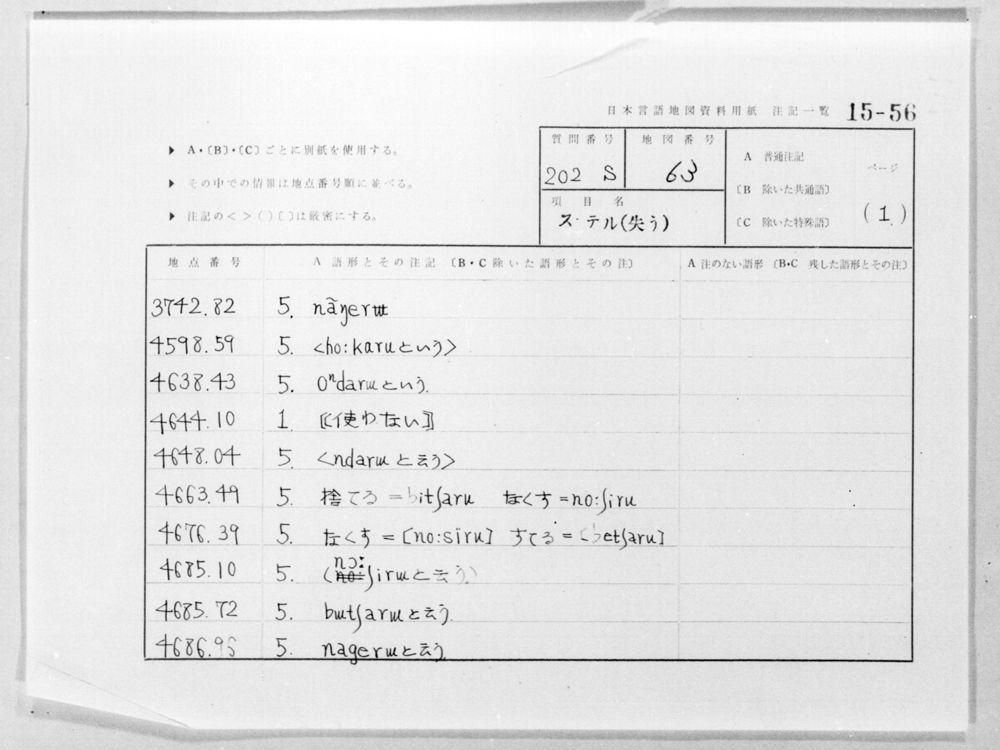 日本言語地図資料用紙 注記一覧 15-56
▶ A・〔B〕・〔C〕ごとに別紙を使用する。
▶ その中での情報は地点番号順に並べる。
▶ 注記の<>()〔〕は厳密にする。
質問番号 地図番号
202 S 63
項目名
ステル(失う)
A 普通注記
〔B 除いた共通語〕
〔C 除いた特殊語〕
ページ
(1)
地点番号 A 語形とその注記〔B・C除いた語形とその注〕 A 注のない語形〔B・C 残した語形とその注〕
3742.82 5. nãŋerɯ
4598.59 5. <ho:karuという>
4638.43 5. oⁿdarɯという.
4644.10 1. 〚使わない〛
4648.04 5. <ndarɯと云う>
4663.49 5. 捨てる=bitʃaru なくす=no:ʃiru
4676.39 5. なくす=[no:siru] すてる=[betʃaru]
4685.10 5. (nɔ:ʃirɯと云う.)
4685.72 5. bɯtʃarɯと云う.
4686.95 5. nagerɯと云う